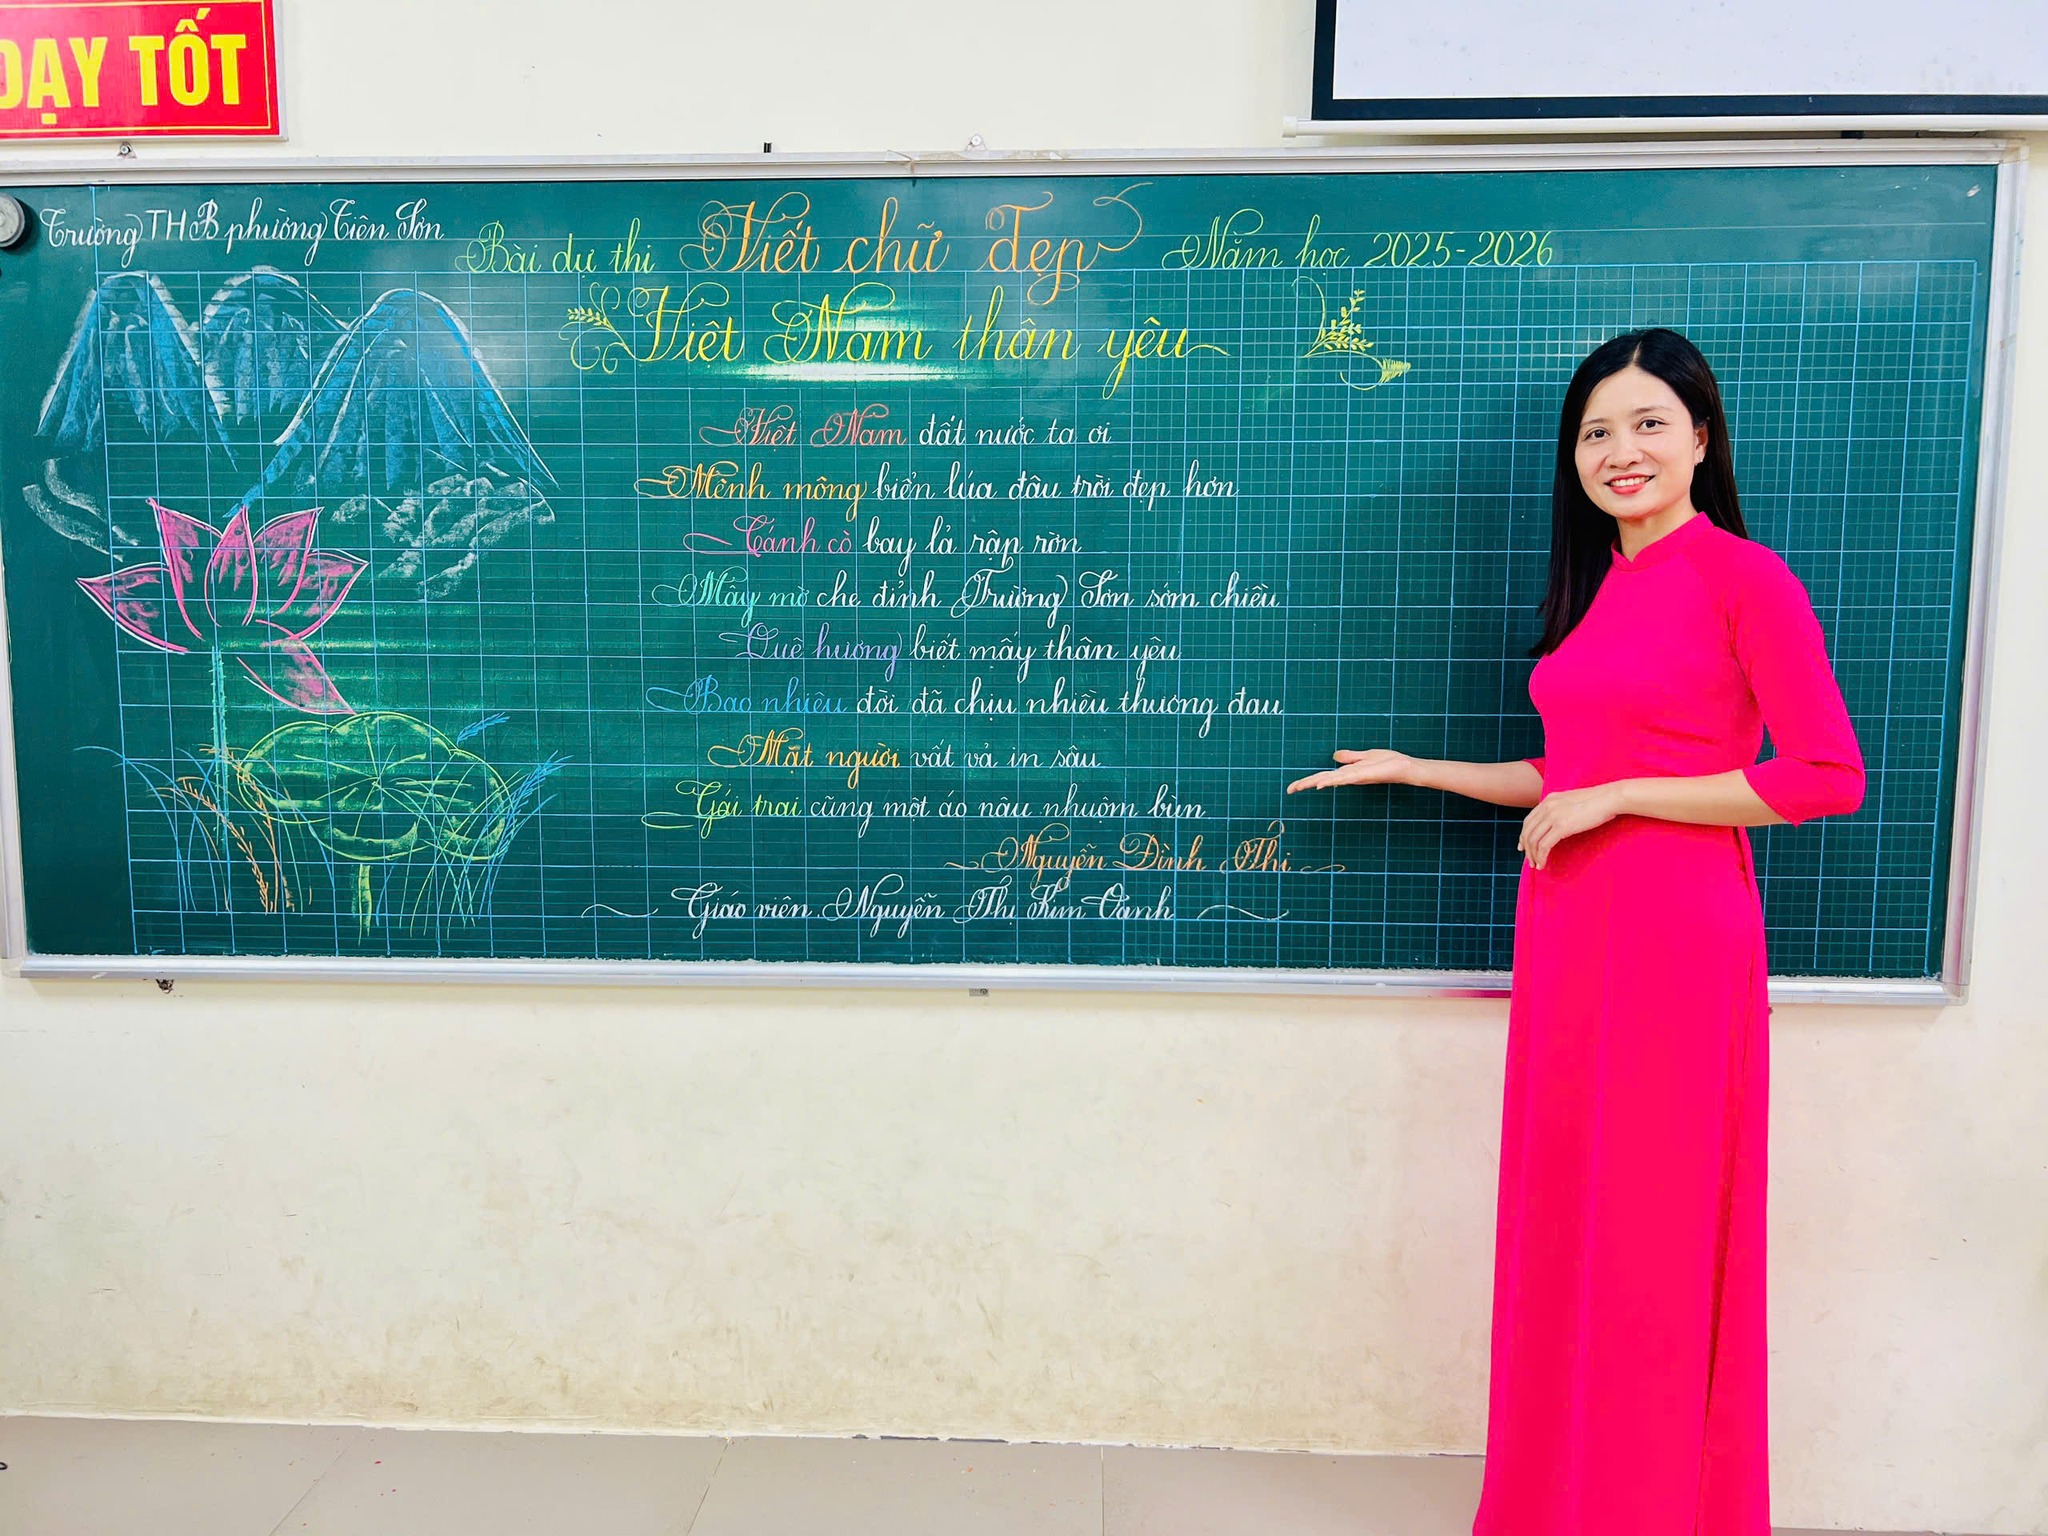 DẠY TỐT
Trường TH B phường Tiên Sơn
Bài dự thi Viết chữ đẹp Năm học 2025-2026
Việt Nam thân yêu
Việt Nam đất nước ta ơi
Mênh mông biển lúa đâu trời đẹp hơn
Cánh cò bay lả rập rờn
Mây mờ che đỉnh Trường Sơn sớm chiều
Quê hương biết mấy thân yêu
Bao nhiêu đời đã chịu nhiều thương đau
Mặt người vất vả in sâu
Gái trai cũng một áo nâu nhuộm bùn
Nguyễn Đình Thi
Giáo viên: Nguyễn Thị Kim Oanh